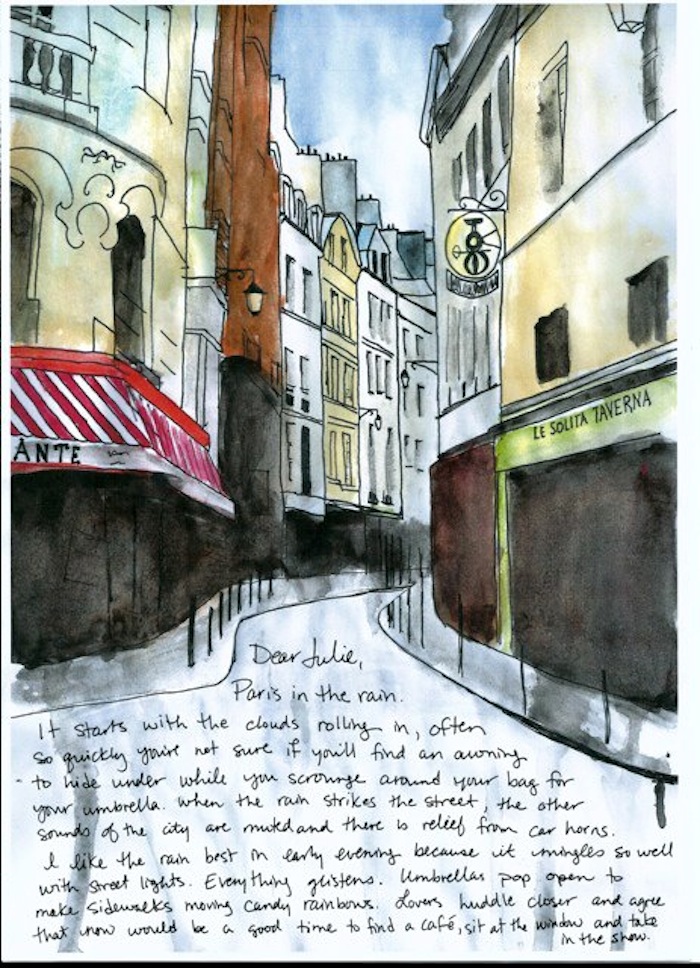 ÀNTE
LE SOLITA TAVERNA
Dear Julie,
Paris in the rain.
It starts with the clouds rolling in, often
so quickly you're not sure if you'll find an awning
to hide under while you scrounge around your bag for
your umbrella. When the rain strikes the street, the other
sounds of the city are muted and there is relief from car horns.
I like the rain best in early evening because it mingles so well
with street lights. Everything glistens. Umbrellas pop open to
make sidewalks moving candy rainbows. Lovers huddle closer and agree
that now would be a good time to find a café, sit at the window and take
in the show.